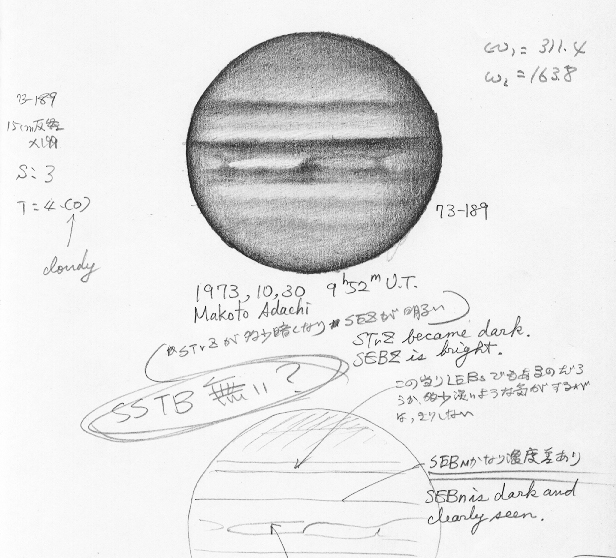 ω₁ = 311.4
ω₂ = 163.8
73-189
15cm反
×189
S: 3
T = 4 (0)
cloudy
73-189
1973, 10, 30 9ʰ52ᵐ U.T.
Makoto Adachi
STrZが多少暗くなり SEZが明るい
STrZ became dark.
SEBZ is bright.
SSTB 無い?
この辺り
うか、多少淡いような気がするが
はっきりしない
SEBNかなり濃度差あり
SEBn is dark and
clearly seen.